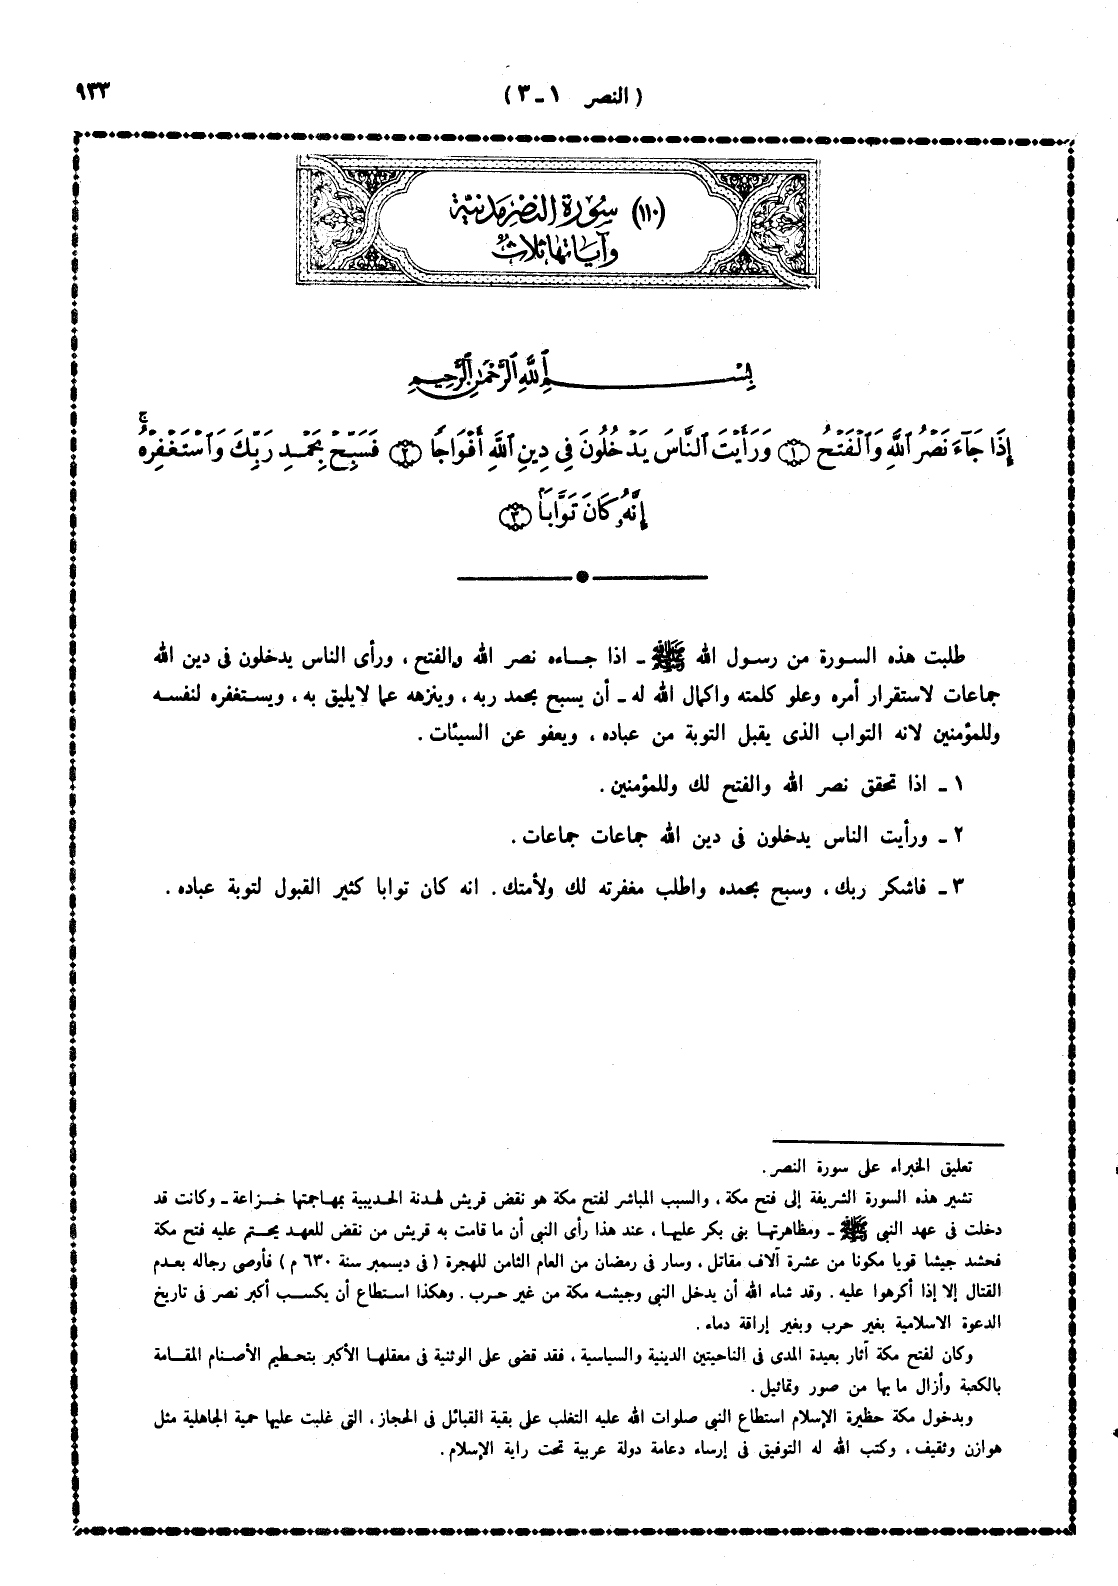 ( النصر ١ ـ ٣ )
٩٣٣
(١١٠) سورة النصر مدنية
وآياتها ثلاث
بِسْمِ ٱللَّهِ ٱلرَّحْمَٰنِ ٱلرَّحِيمِ
إِذَا جَآءَ نَصْرُ ٱللَّهِ وَٱلْفَتْحُ ١ وَرَأَيْتَ ٱلنَّاسَ يَدْخُلُونَ فِى دِينِ ٱللَّهِ أَفْوَاجًا ٢ فَسَبِّحْ بِحَمْدِ رَبِّكَ وَٱسْتَغْفِرْهُ ۚ
إِنَّهُۥ كَانَ تَوَّابًۢا ٣
طلبت هذه السورة من رسول الله ﷺ ـ اذا جاءه نصر الله والفتح ، ورأى الناس يدخلون فى دين الله
جماعات لاستقرار أمره وعلو كلمته واكمال الله له ـ أن يسبح بحمد ربه ، وينزهه عما لايليق به ، ويستغفره لنفسه
وللمؤمنين لانه التواب الذى يقبل التوبة من عباده ، ويعفو عن السيئات .
١ ـ اذا تحقق نصر الله والفتح لك وللمؤمنين .
٢ ـ ورأيت الناس يدخلون فى دين الله جماعات جماعات .
٣ ـ فاشكر ربك ، وسبح بحمده واطلب مغفرته لك ولأمتك . انه كان توابا كثير القبول لتوبة عباده .
تعليق الخبراء على سورة النصر .
تشير هذه السورة الشريفة إلى فتح مكة ، والسبب المباشر لفتح مكة هو نقض قريش لهدنة الحديبية بمهاجمتها خزاعة ـ وكانت قد
دخلت فى عهد النبى ﷺ ـ ومظاهرتها بنى بكر عليها ، عند هذا رأى النبى أن ما قامت به قريش من نقض للعهد يحتم عليه فتح مكة
فحشد جيشا قويا مكونا من عشرة آلاف مقاتل ، وسار فى رمضان من العام الثامن للهجرة ( فى ديسمبر سنة ٦٣٠ م ) فأوصى رجاله بعدم
القتال إلا إذا أكرهوا عليه . وقد شاء الله أن يدخل النبى وجيشه مكة من غير حرب . وهكذا استطاع أن يكسب أكبر نصر فى تاريخ
الدعوة الاسلامية بغير حرب وبغير إراقة دماء .
وكان لفتح مكة آثار بعيدة المدى فى الناحيتين الدينية والسياسية ، فقد قضى على الوثنية فى معقلها الأكبر بتحطيم الأصنام المقامة
بالكعبة وأزال ما بها من صور وتماثيل .
وبدخول مكة حظيرة الإسلام استطاع النبى صلوات الله عليه التغلب على بقية القبائل فى الحجاز ، التى غلبت عليها حمية الجاهلية مثل
هوازن وثقيف ، وكتب الله له التوفيق فى إرساء دعامة دولة عربية تحت راية الإسلام .